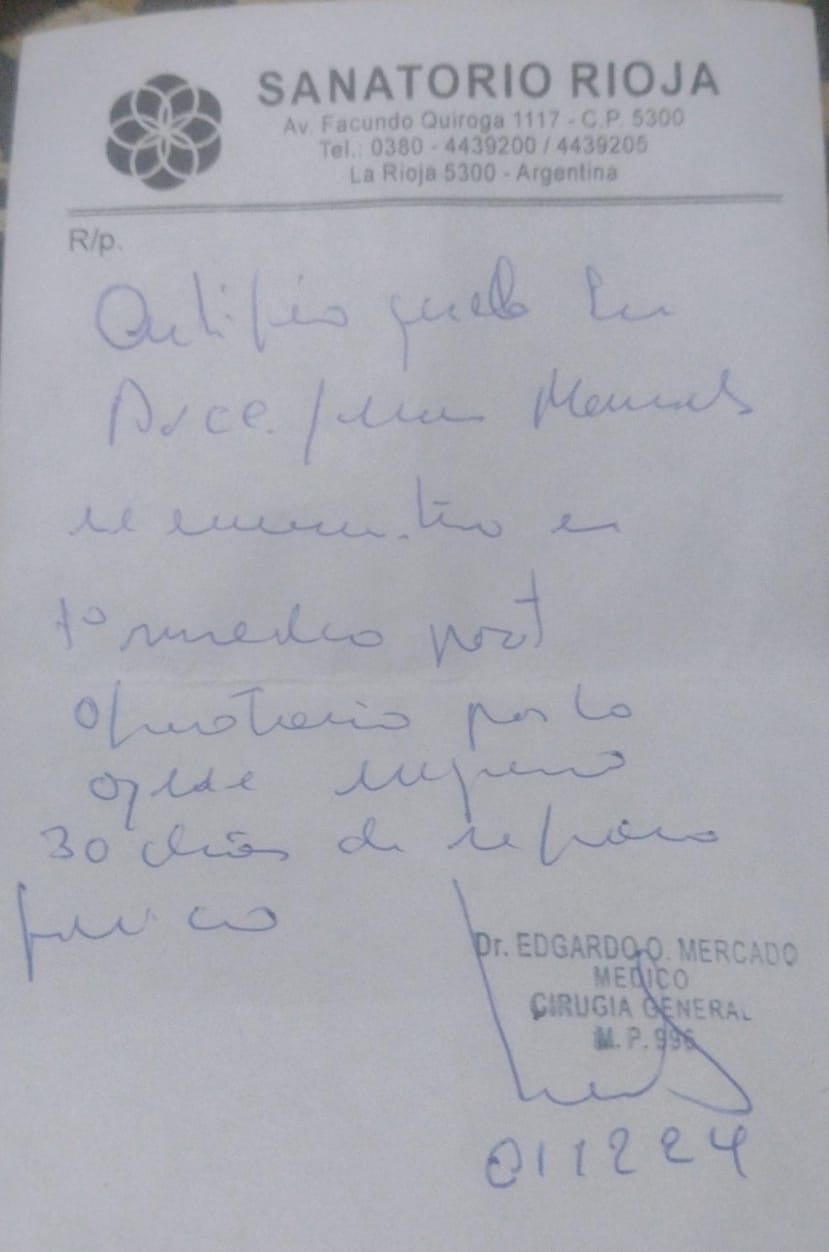 SANATORIO RIOJA
Av. Facundo Quiroga 1117 - C.P. 5300
Tel.: 0380 - 4439200 / 4439205
La Rioja 5300 - Argentina
R/p.
Certifico
Arce Juan
se encuentra en
1º post
operatorio por lo
que sugiero
30 días de reposo
físico
Dr. EDGARDO O. MERCADO
MEDICO
CIRUGIA GENERAL
M. P. 996
011224